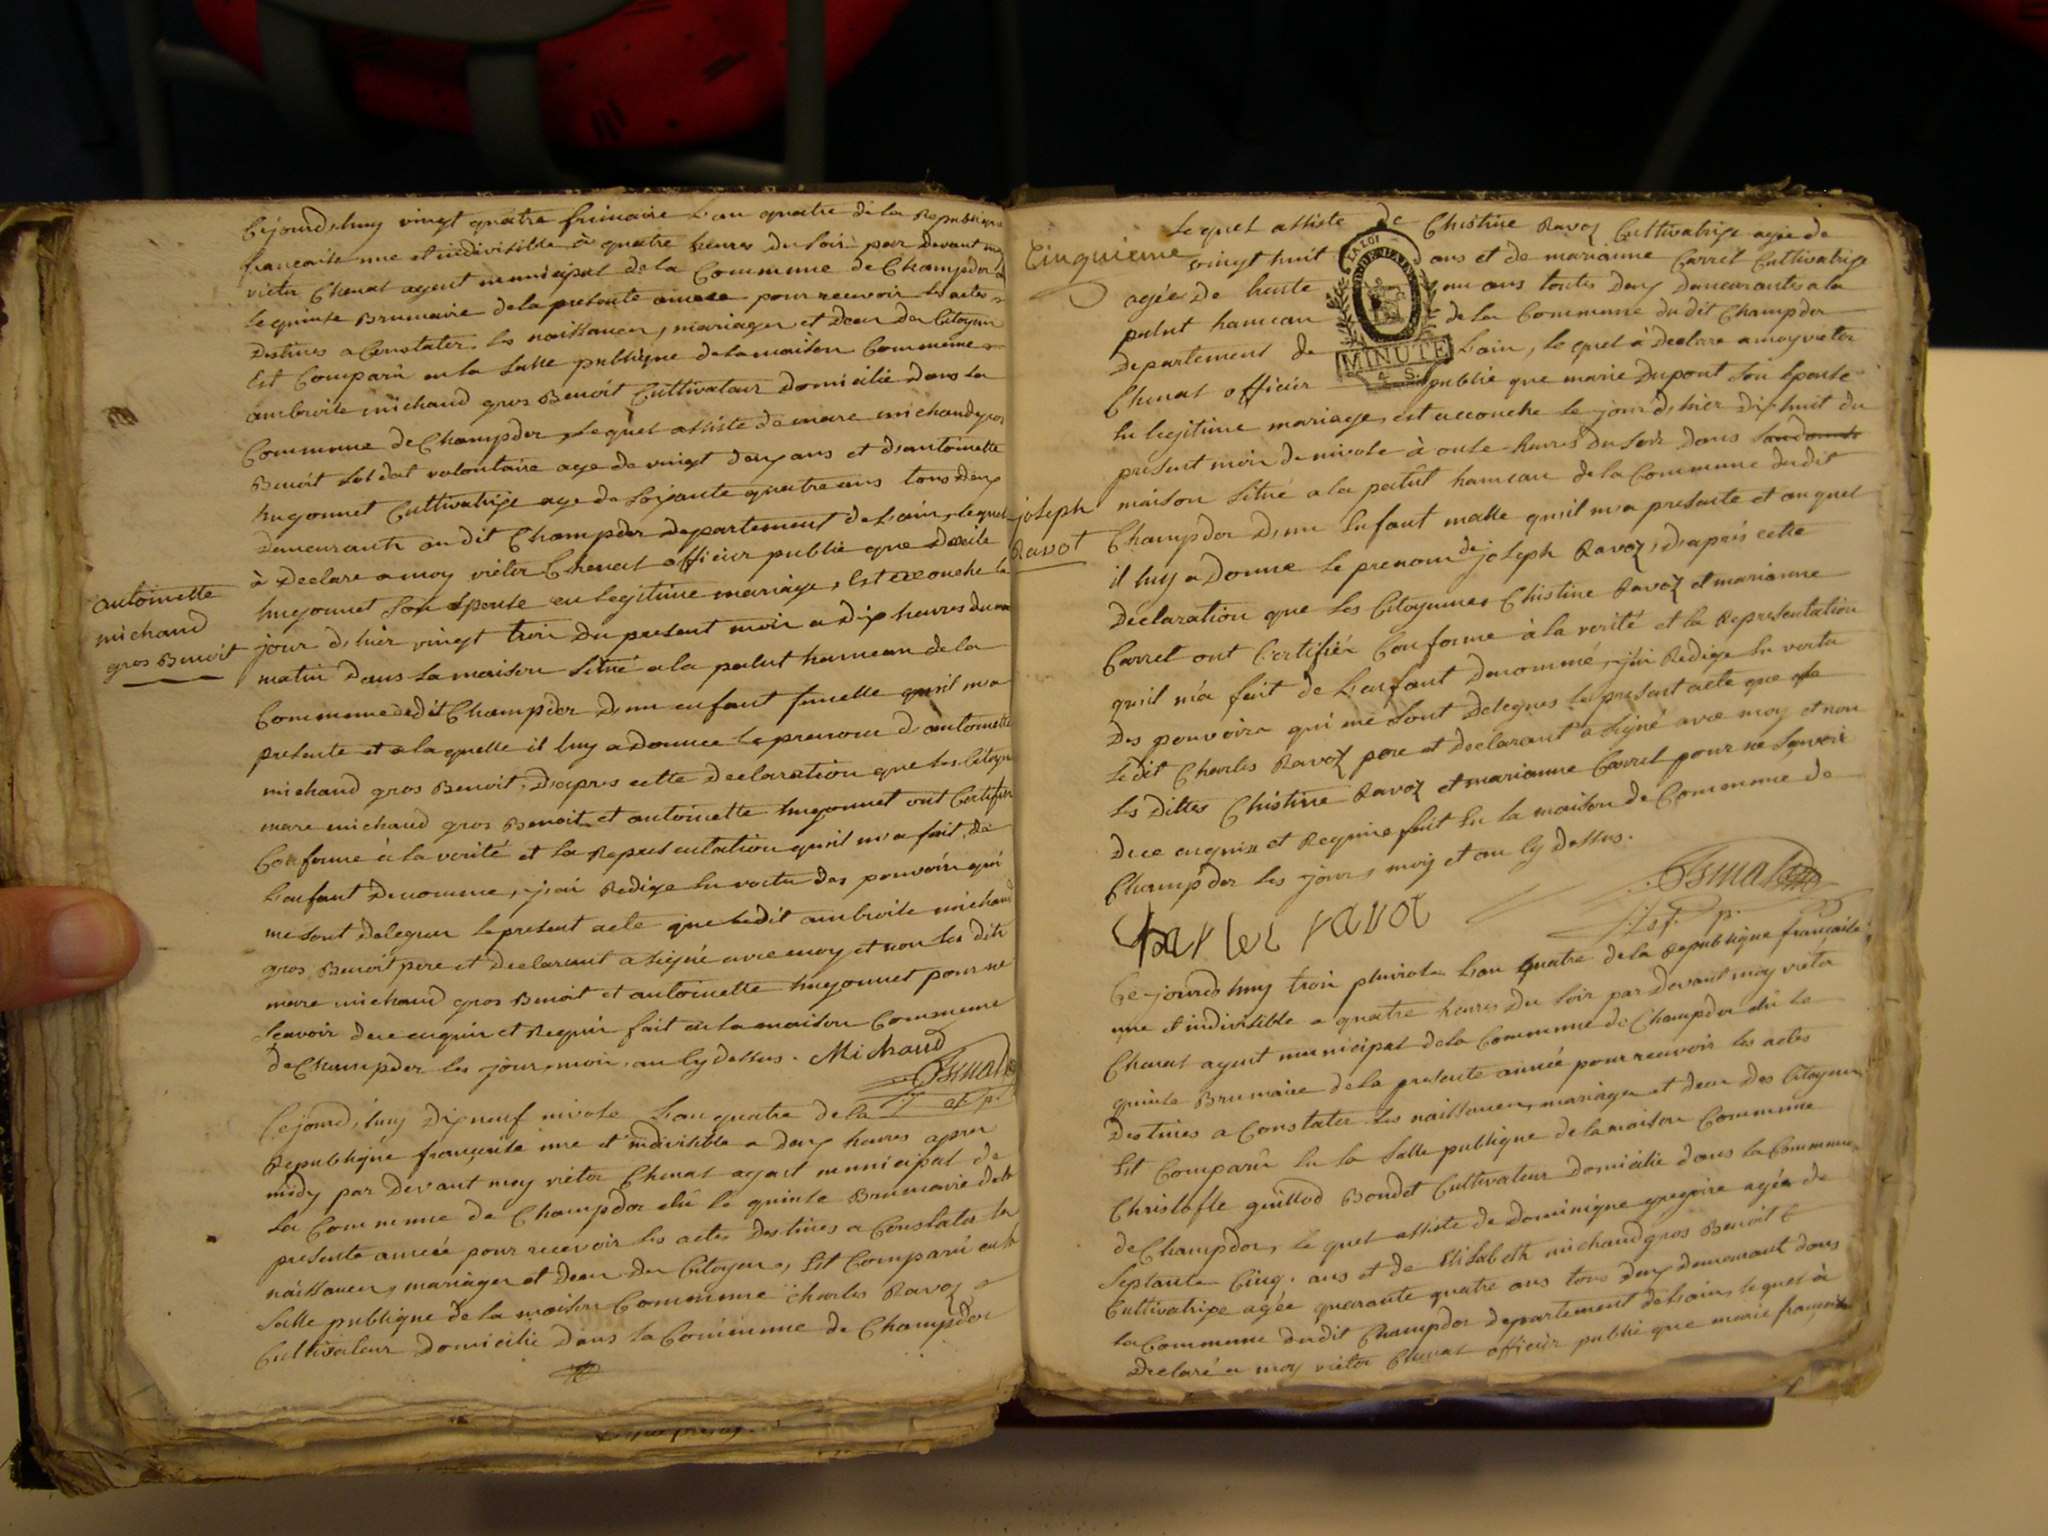 Cejourd'huy vingt quatre frimaire l'an quatre de la Republique
francaise une et indivisible à quatre heures du soir par devant moy
victor Chenat agent municipal de la Commune de Champdor élu
le quinse Brumaire de la presente année pour recevoir les actes
Destines a Constater les naissances, mariages et deces des Citoyens
Est Comparû en la salle publique de la maison Commune
ambroise michaud gros Benoit Cultivateur Domicilie dans la
Commune de Champdor, lequel assiste de mare michaud gros
Benoit soldat volontaire age de vingt deux ans et d'antoinette
hugonnet Cultivatrije age de soixante quatre ans tous deux
demeurants au dit Champdor departement de l'ain, lequel
à Declare a moy victor Chenat officier public que
hugonnet son Epouse en legitime mariage, Est accouche le
jour d'hier vingt trois du present mois a dix heures du
matin dans sa maison situé a la palut hameau de la
Commune dudit Champdor D'un enfant femelle qu'il m'a
presente et a laquelle il luy a Donnee le prenom d'antoinette
michaud gros Benoit, D'apres cette declaration que les Citoyens
mare michaud gros Benoit et antoinette hugonnet ont Certifier
Conforme à la verité et la Representation qu'il m'a fait de
L'enfant Denomme, j'ai Redige En vertu des pouvoirs qui
me sont delegues le present acte que ledit ambroise michaud
gros Benoit pere et declarant a signé avec moy et non les dits
mare michaud gros Benoit et antoinette hugonnet pour ne
scavoir de ce enquis et Requis fait en la maison Commune
de Champdor les jour, mois, an cy dessus. Michaud
antoinette
michaud
gros Benoit
Cejourd'huy dix neuf nivose L'an quatre de la
Republique française une et indivisible a deux heures apres
midy par devant moy victor Chenat agent municipal de
la Commune de Champdor élû le quinse Brumaire de la
presente année pour recevoir les actes Destines a Constater les
naissances, mariages et deces des Citoyens, Est Comparû en la
salle publique de la maison Commune Charles Ravoz
Cultivateur Domicilie dans la Commune de Champdor
Cinquieme
Lequel assiste de Christine Ravoz Cultivatrije agée de
vingt huit ans et de marianne Carret Cultivatrije
agée de trente un ans toutes deux demeurantes a la
palut hameau de la Commune du dit Champdor
departement de L'ain, lequel à Declare a moy victor
Chenat officier publie que marie Dupont son Epouse
LA LOI
MINUTE
4 S.
En legitime mariage, est accouche le jour d'hier dix huit du
present mois de nivose à onse heures du soir dans sa
maison situé a la palut hameau de la Commune dudit
Champdor D'un Enfant malle qu'il m'a presente et auquel
il luy a Donne le prenom de joseph Ravoz, d'après cette
Declaration que les Citoyennes Christine Ravoz et marianne
Carret ont Certifiér Conforme à la verité et la Representation
qu'il m'a fait de L'enfant Denommé, j'ai Redige En vertu
Des pouvoirs qui me sont Delegues le present acte que
ledit Charles Ravoz pere et declarant a signé avec moy et non
les dittes Christine Ravoz et marianne Carret pour ne scavoir
de ce enquis et Requis fait En la maison de Commune de
Champdor les jours, mois et an cy dessus.
joseph
Ravot
Charles ravoz
Cejourd'huy trois pluviose L'an quatre de la Republique française
une et indivisible a quatre heures du soir par devant moy victor
Chenat agent municipal de la Commune de Champdor élû le
quinse Brumaire de la presente année pour recevoir les actes
Destines a Constater les naissances, mariages et deces des Citoyens
Est Comparû En la salle publique de la maison Commune
Christofle guillod Bondet Cultivateur Domicilie dans la Commune
de Champdor, lequel assiste de Dominique gregoire agée de
septante Cinq. ans et de Elisabeth michaud gros Benoit
Cultivatrice agée quarante quatre ans tous deux demeurant dans
la Commune dudit Champdor departement de L'ain, lequel à
Declaré a moy victor Chenat officier public que marie françoise